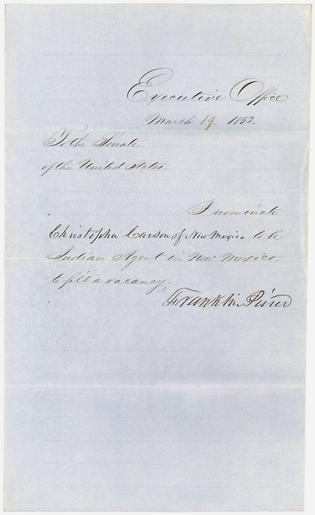 Executive Office
March 19. 1853.
To the Senate
of the United States.
I nominate
Christopher Carson of New Mexico to be
Indian Agent in New Mexico,
to fill a vacancy.
Franklin Pierce